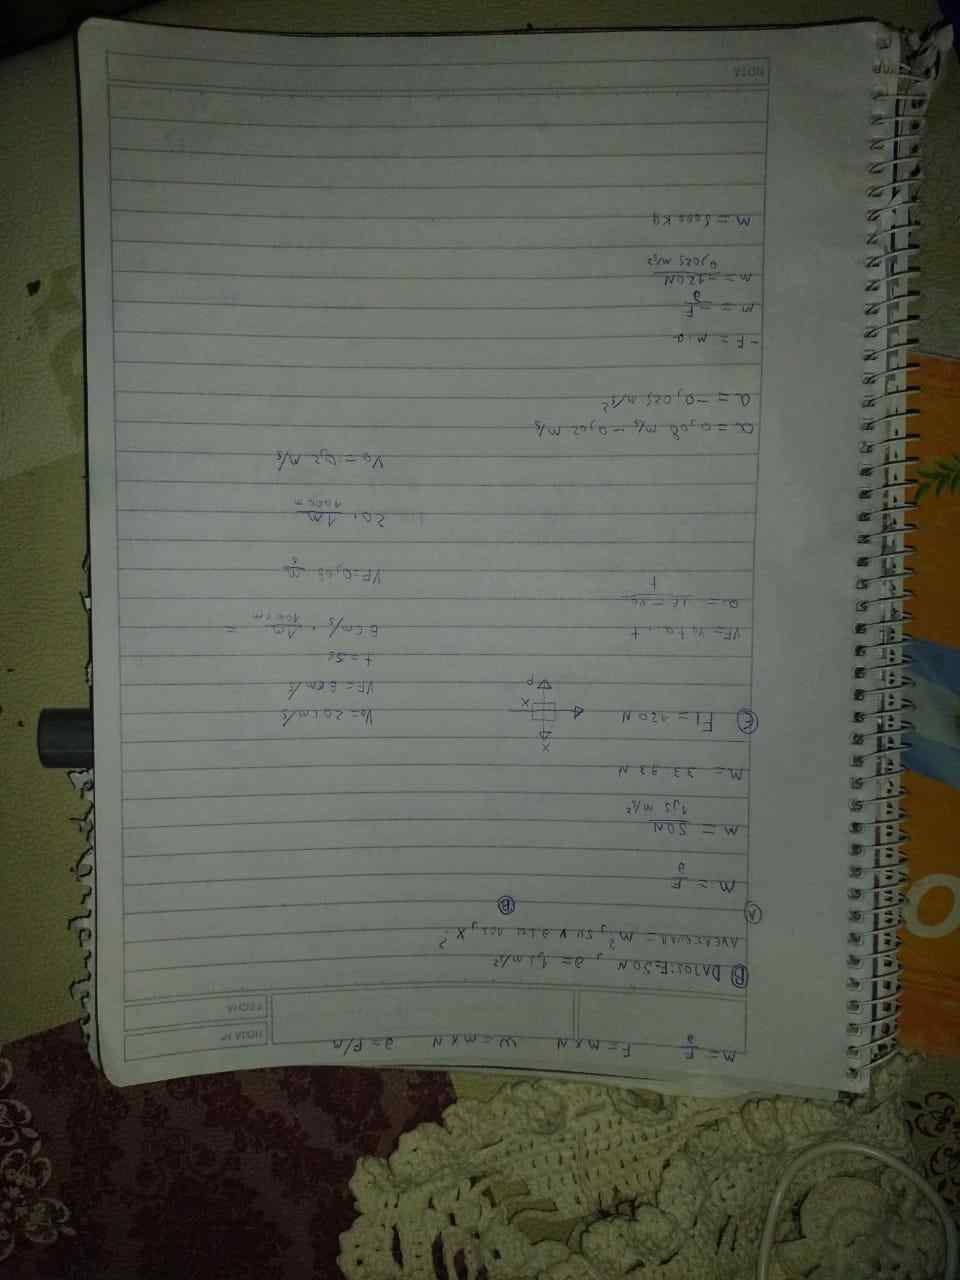 m = F/a F = m x N w = m x N a = F/m
HOJA Nº
FECHA
B DATOS: F=50N, a = 1,5 m/s²
AVERIGUAR = m?, su v a los X?
A B
m = F/a
m = 50N / 1,5 m/s²
m = 33 33 N
C F1 = 120N X X P Vo = 20cm/s
VF = 8cm/s
t = 5s
VF = vo + a . t 8 cm/s . 1m / 100cm =
a = vf - vo / t VF=0,08 m/s
20. 1m / 100cm
Vo = 0,2 m/s
a = 0,08 m/s - 0,02 m/s
a = -0,025 m/s²
-F = m.a
m = -F/a
m = -120N / 0,025 m/s²
m = 5000 Kg
NOTA